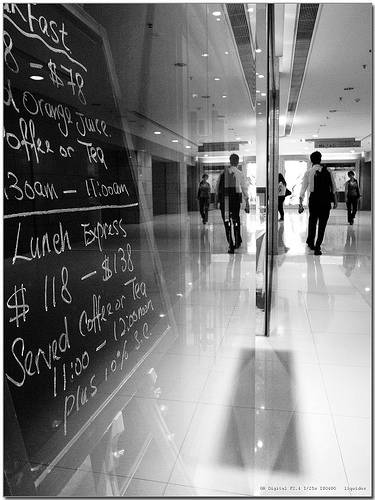 kfast
8 - $78
Orange Juice
Coffee or Tea
:30am - 11:00am
Lunch Express
$118 - $138
Served Coffee or Tea
11:00 - 12:00noon
plus 10% s.c.
GR Digital F2.4 1/25s ISO400